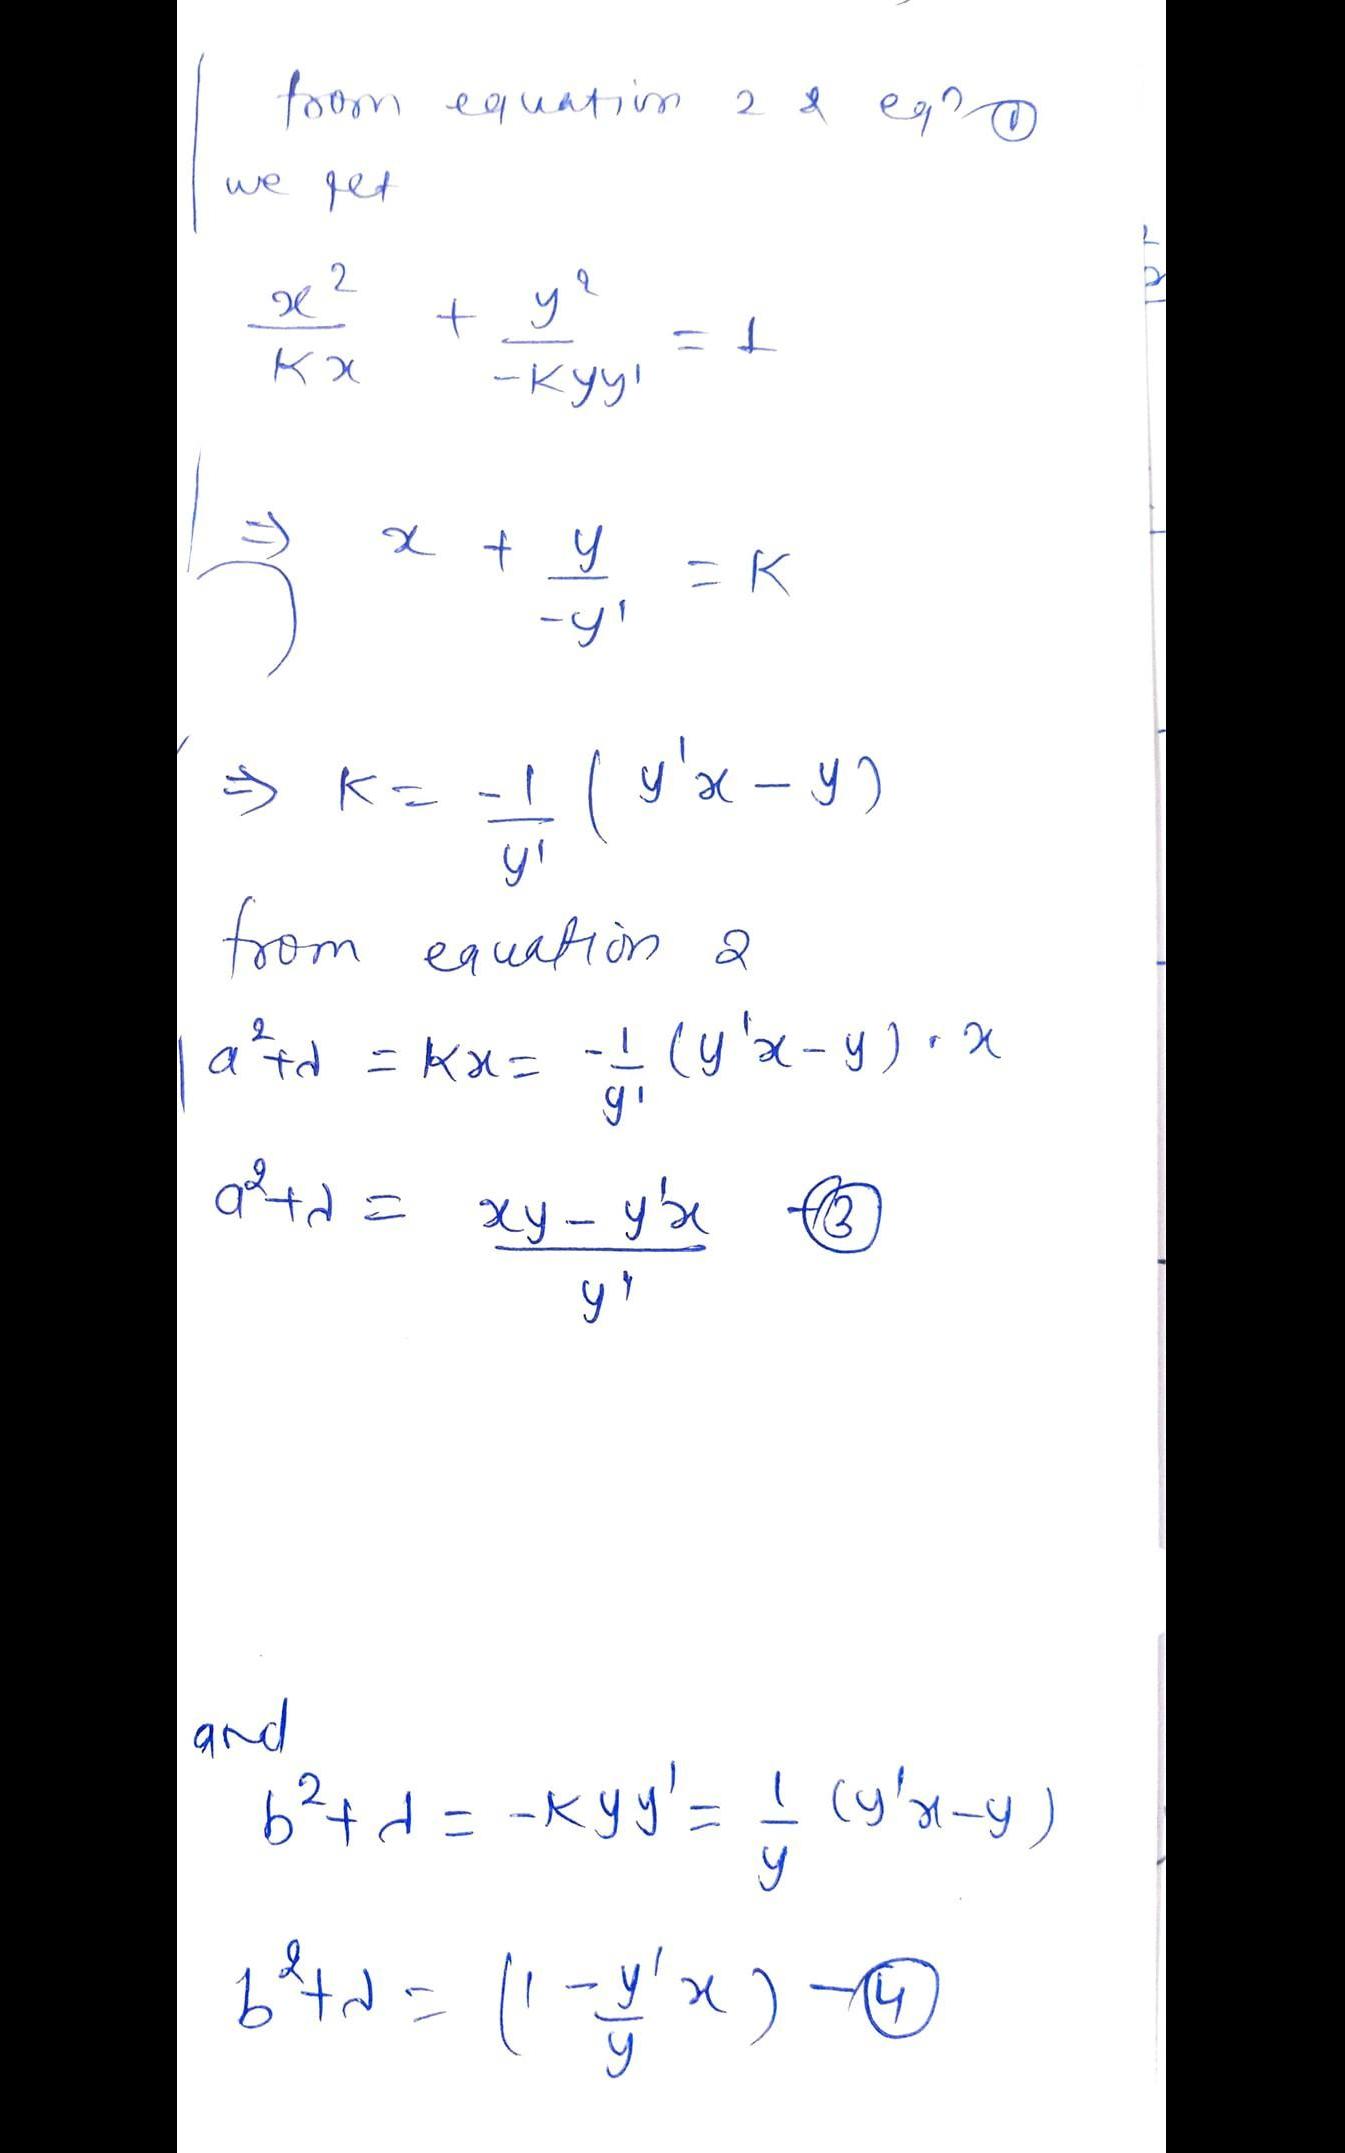 from equation 2 & eqn ①
we get
x²/Kx + y²/-Kyy' = 1
⇒ x + y/-y' = K
⇒ K = -1/y' (y'x - y)
from equation 2
a²+λ = Kx = -1/y' (y'x - y) · x
a²+λ = xy - y'x / y' -③
and
b²+λ = -Kyy' = 1/y (y'x - y)
b²+λ = (1 - y'/y x) -④